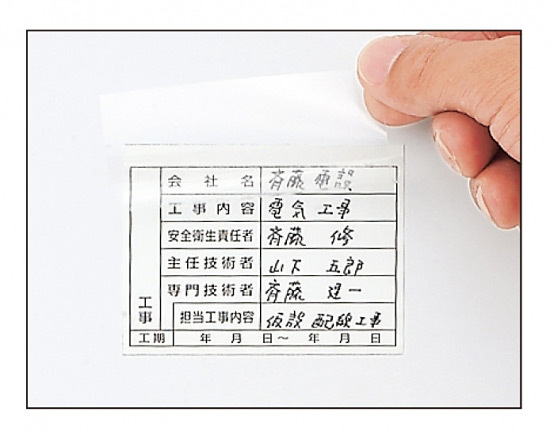 会社名 斉藤電設
工事内容 電気工事
安全衛生責任者 斉藤 修
主任技術者 山下 五郎
専門技術者 斉藤 建一
工事 担当工事内容 仮設配線工事
工期 年 月 日～ 年 月 日